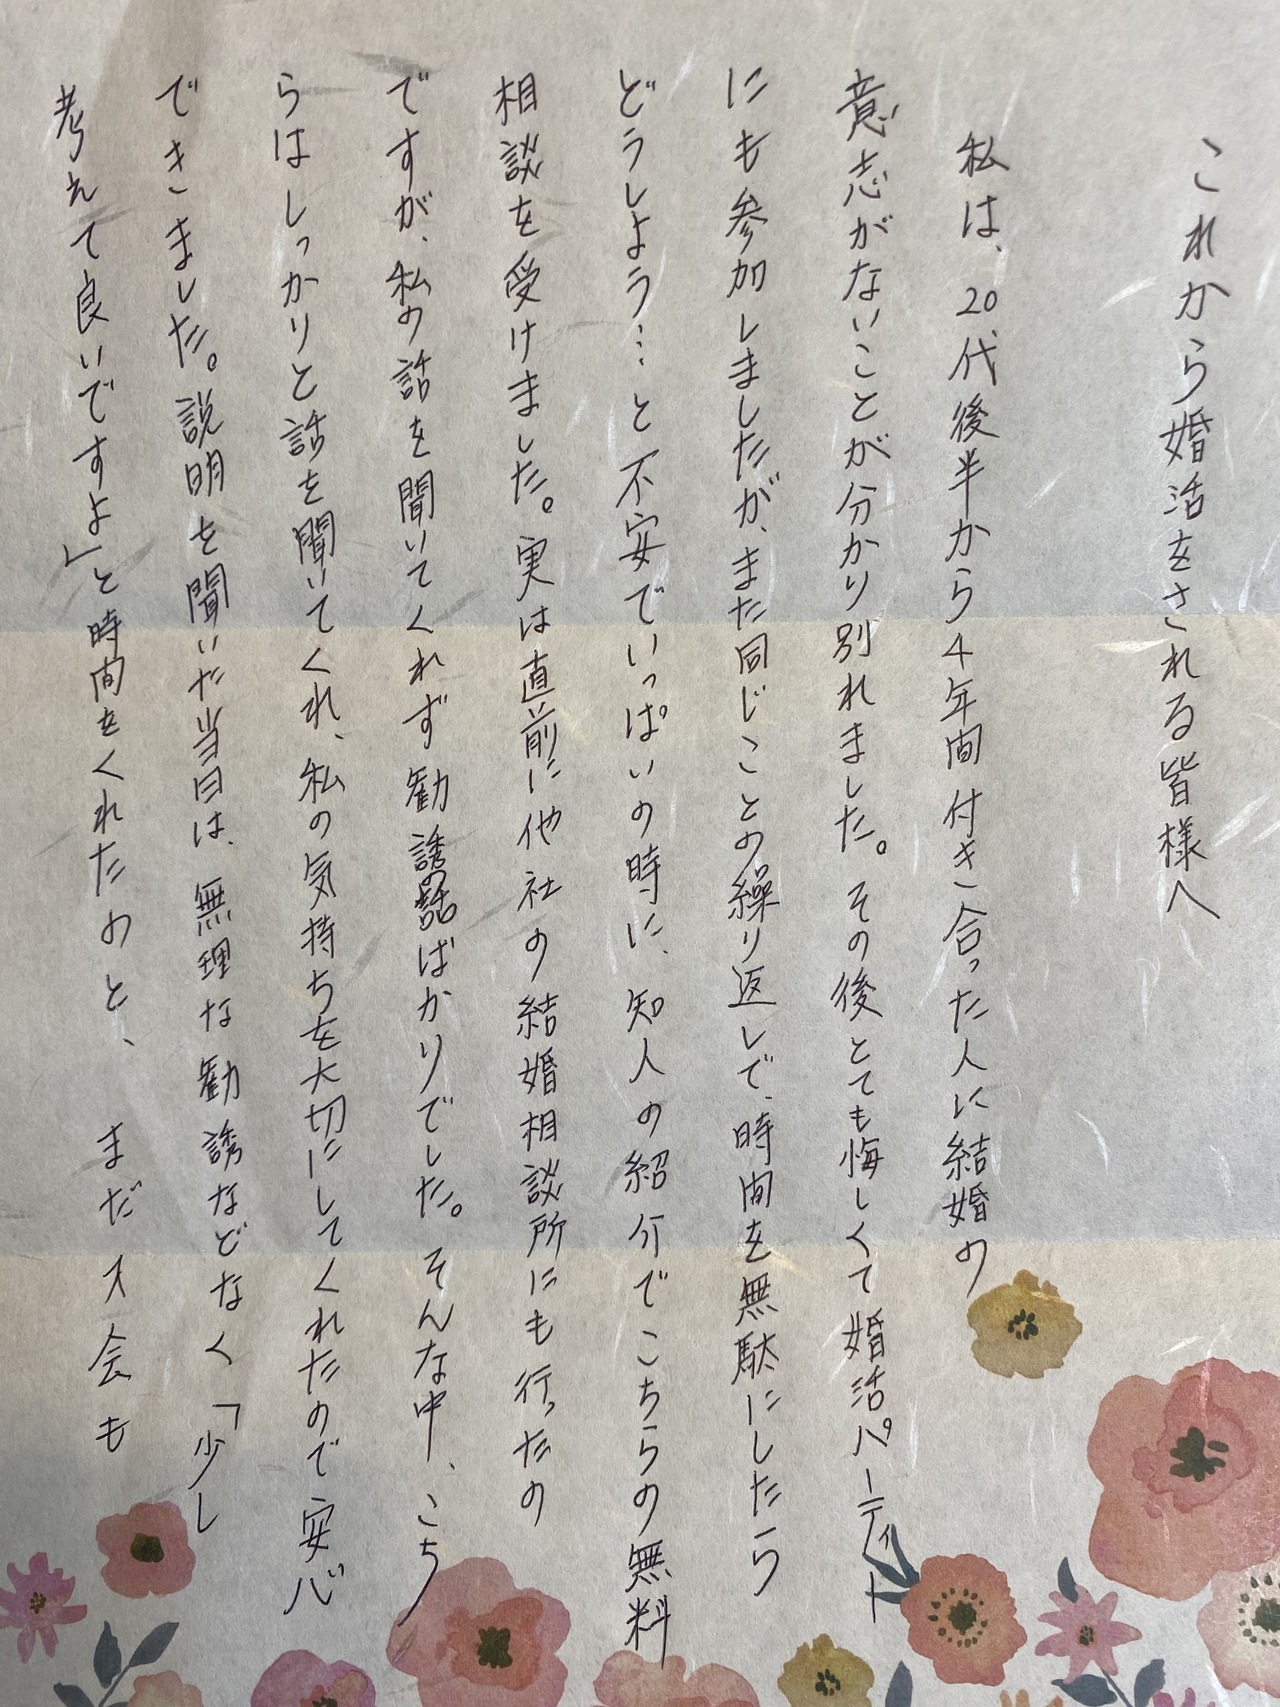 これから婚活をされる皆様へ
私は、20代後半から4年間付き合った人に結婚の
意志がないことが分かり別れました。その後とても悔しくて婚活パーティー
にも参加しましたが、また同じことの繰り返しで、時間を無駄にしたら
どうしよう…と不安でいっぱいの時に、知人の紹介でこちらの無料
相談を受けました。実は直前に他社の結婚相談所にも行ったの
ですが、私の話を聞いてくれず勧誘の話ばかりでした。そんな中、こち
らはしっかりと話を聞いてくれ、私の気持ちを大切にしてくれたので安心
できました。説明を聞いた当日は、無理な勧誘などなく「少し
考えて良いですよ」と時間をくれたのと、まだ入会も